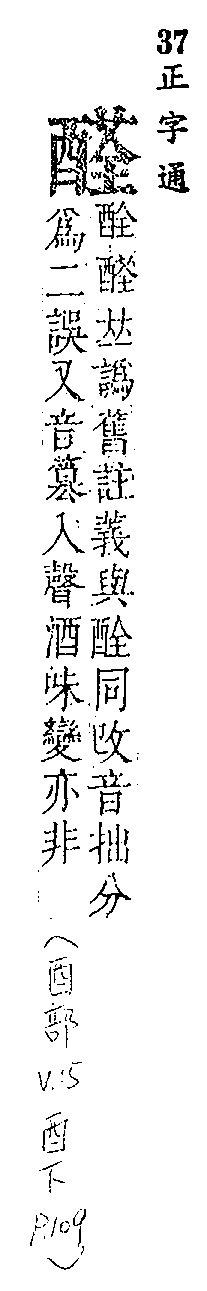 37 正字通
醛
酫醛𠀤譌舊註義與酫同改音拙分
爲二誤又音篡入聲酒味變亦非
(酉部 V.15 酉下 P.109)